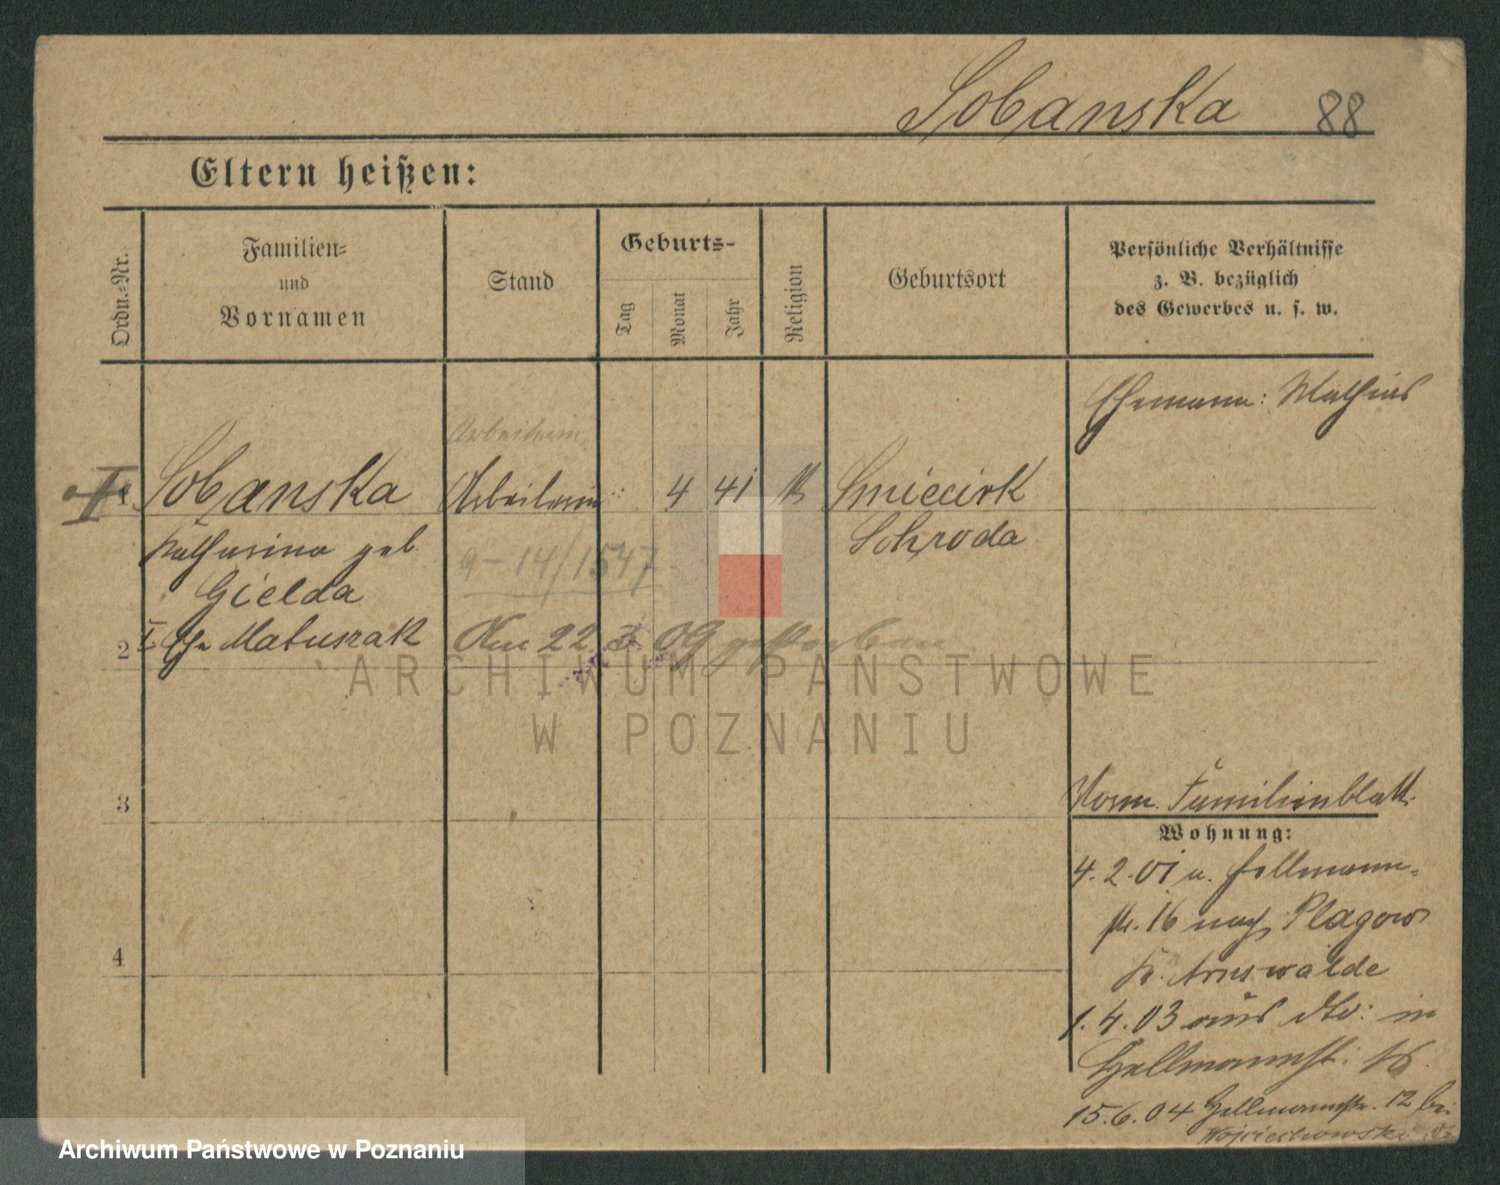 Sobanska 88
Eltern heißen:
Ordn.=Nr.
Familien=
und
Vornamen
Stand
Geburts-
Tag
Monat
Jahr
Religion
Geburtsort
Persönliche Verhältnisse
z. B. bezüglich
des Gewerbes u. s. w.
Ehemann: Mathias
Arbeiterin
I 1 Sobanska Arbeiterin 4 41 k Sniecisk
Katharina geb. 9-14/1547 Schroda
Gielda
2 I. Ehe Matuszak Am 22.3.09 gestorben
ARCHIWUM PAŃSTWOWE
W POZNANIU
3
Vorm. Familienblatt.
Wohnung:
4.2.01 u. Hellmann-
str. 16 nach Plagow
4
Kr. Arnswalde
1.4.03 aus dto: in
Hellmannstr. 16.
15.6.04 Hellmannstr. 12 bei
Wojciechowski
Archiwum Państwowe w Poznaniu